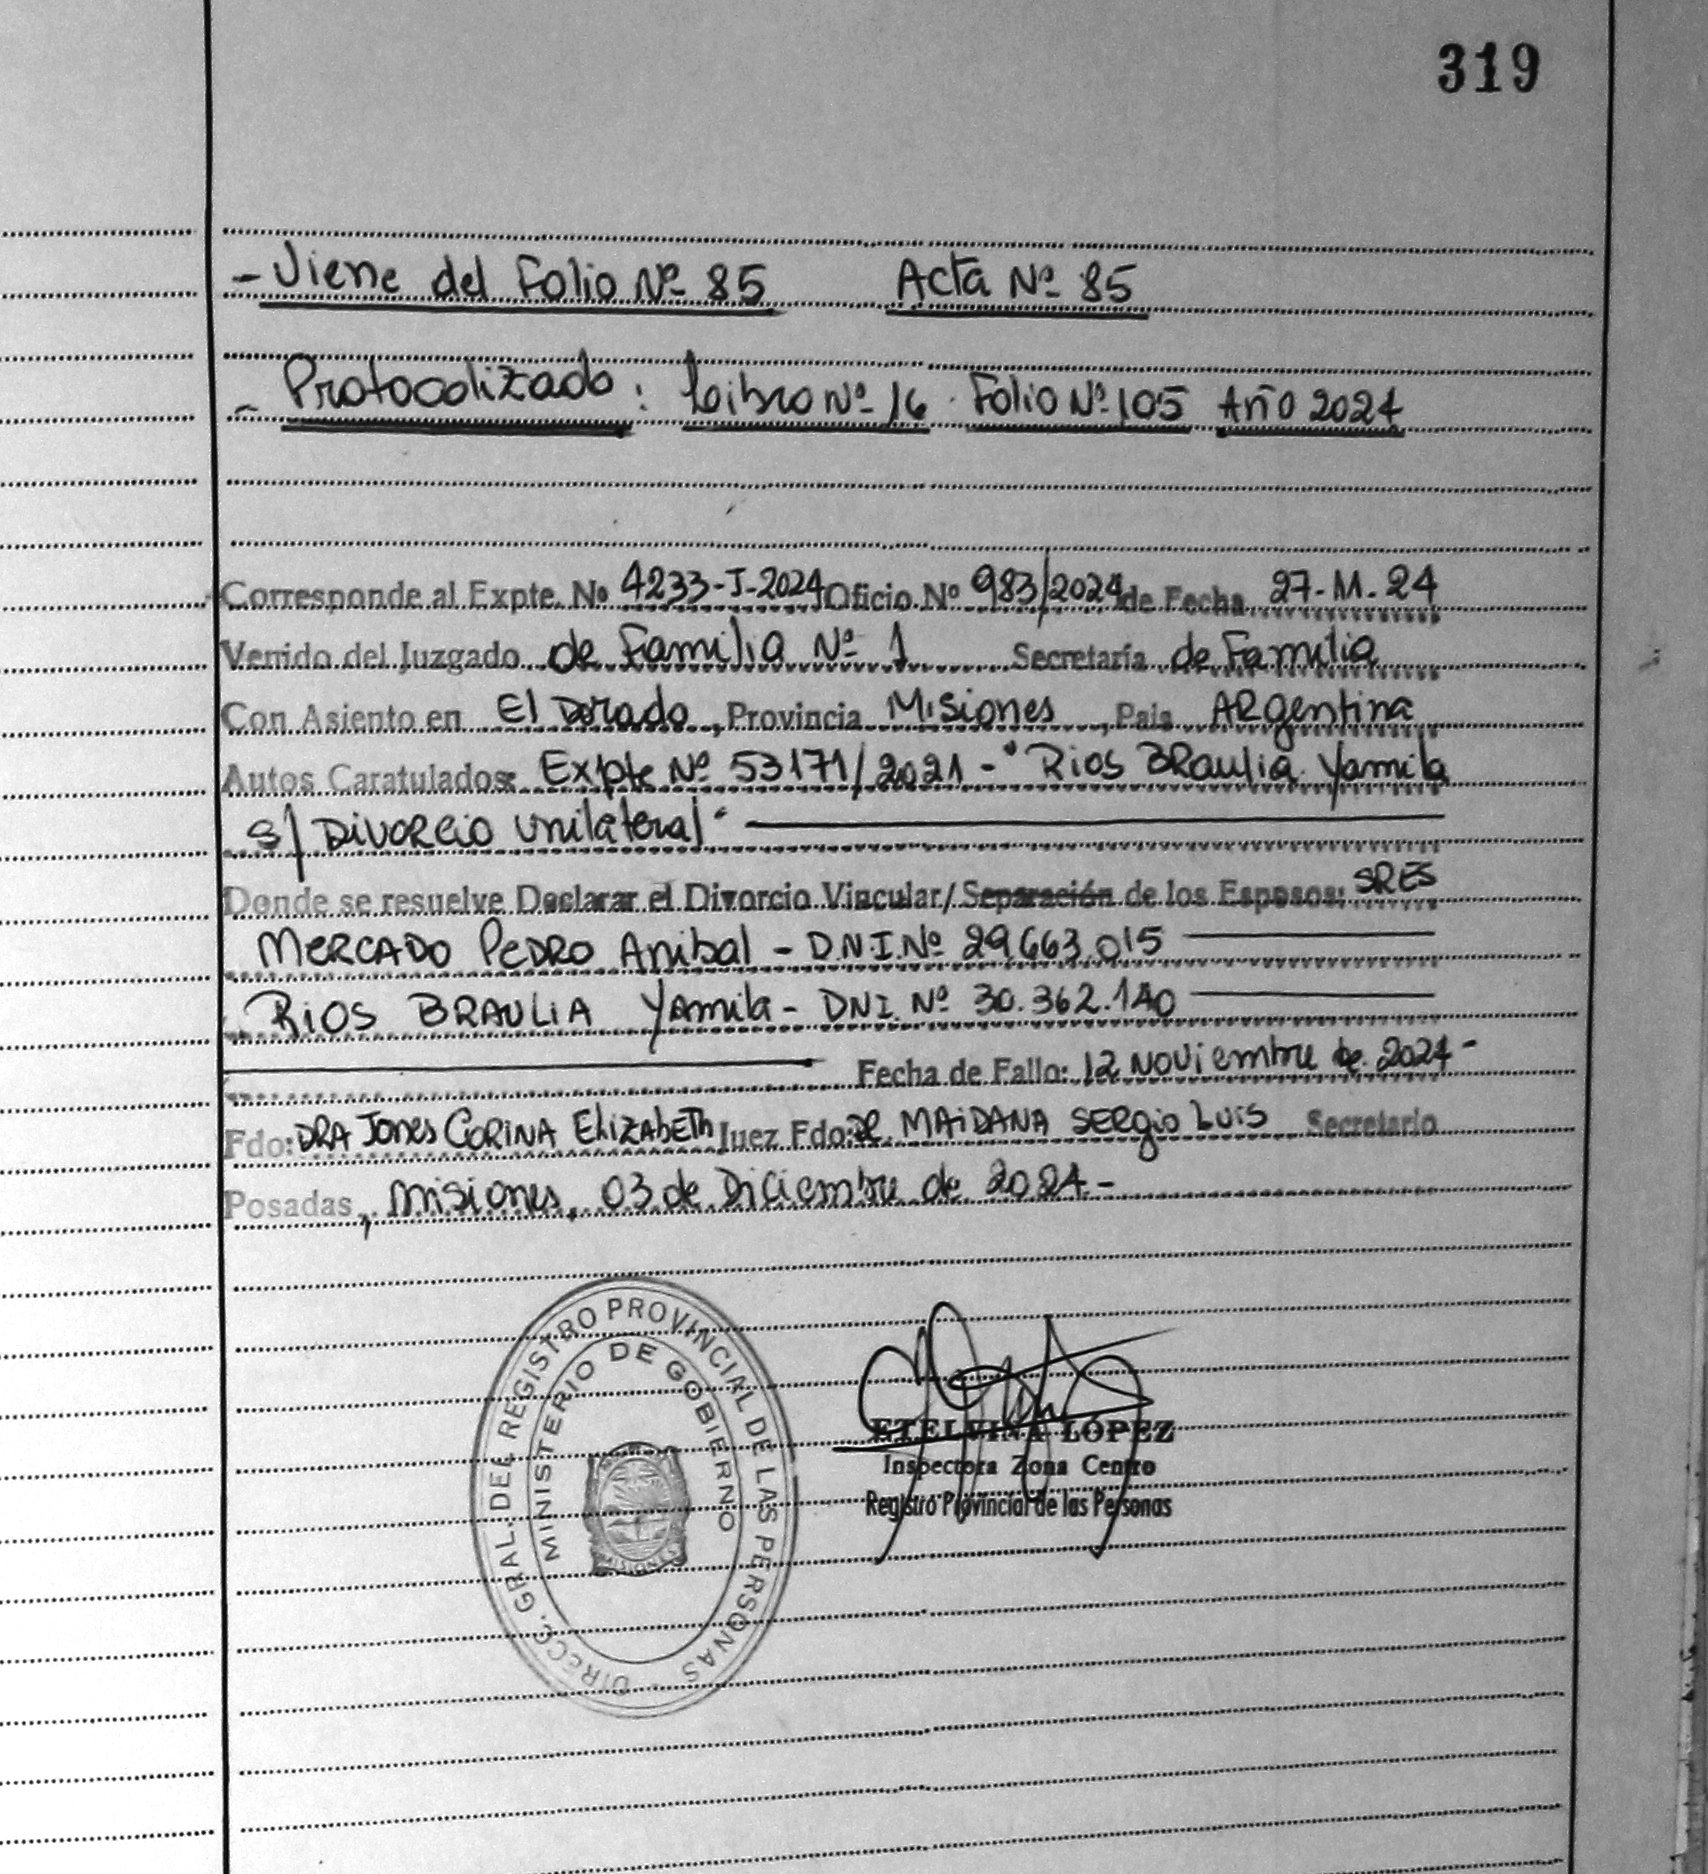 319
- Viene del Folio Nº 85 Acta Nº 85
- Protocolizado: Libro Nº 16 Folio Nº 105 Año 2024
Corresponde al Expte. Nº 4233-J-2024 Oficio Nº 983/2024 de Fecha 27-11-24
Venido del Juzgado de Familia Nº 1 Secretaría de Familia
Con Asiento en El Dorado, Provincia Misiones, Pais Argentina
Autos Caratulados: Expte Nº 53171/2021 - "Rios Braulia Yamila
s/ Divorcio unilateral"
Donde se resuelve Declarar el Divorcio Vincular/Separación de los Esposos: SRES
MERCADO PEDRO Anibal - D.N.I. Nº 29.663.015
RIOS BRAULIA Yamila - DNI. Nº 30.362.140
Fecha de Fallo: 12 Noviembre de 2024-
Fdo: DRA Jones CORINA ElizabETh Juez Fdo: DR. MAIDANA SERgio LUIS Secretario
Posadas, misiones, 03 de Diciembre de 2024.-
DIRECC. GRAL. DEL REGISTRO PROVINCIAL DE LAS PERSONAS
MINISTERIO DE GOBIERNO
MISIONES
ETELVINA LÓPEZ
Inspectora Zona Centro
Registro Provincial de las Personas